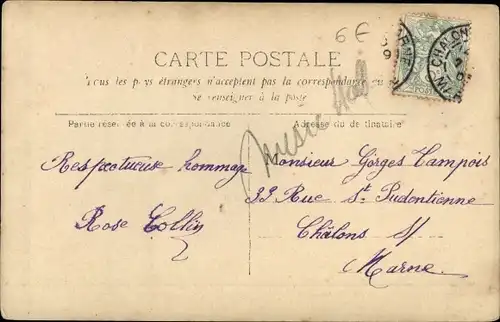 6 E
CARTE POSTALE
Tous les pays étrangers n'acceptent pas la correspondance au
Se renseigner à la poste
Partie réservée à la correspondance
Adresse du destinataire
music hall
Respectueuse hommage
Rose Collin
Monsieur Gorges Tampois
33 Rue St Pudentienne
Châlons S/
Marne.
CHALON
MARNE
POST